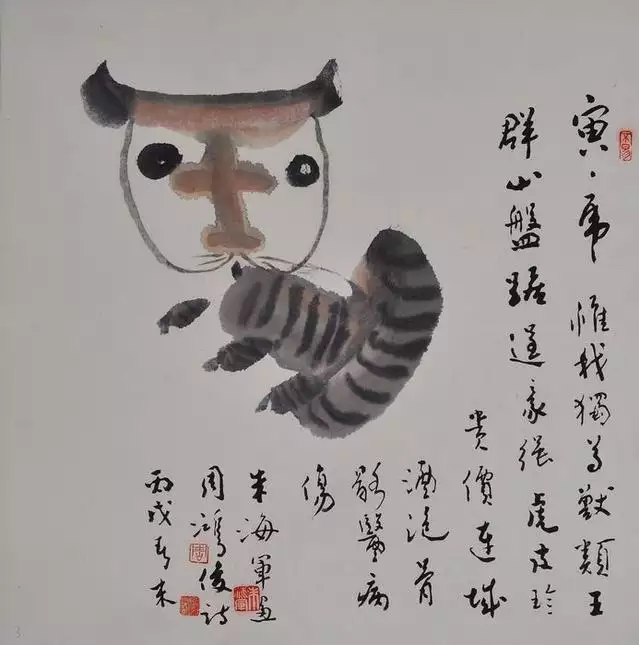 寅、虎 惟我獨尊獸類王
群山盤踞逞豪強 虎皮珍
貴價連城
酒泡骨
骼醫病
傷
朱海軍畫
周鴻俊詩
丙戌春末